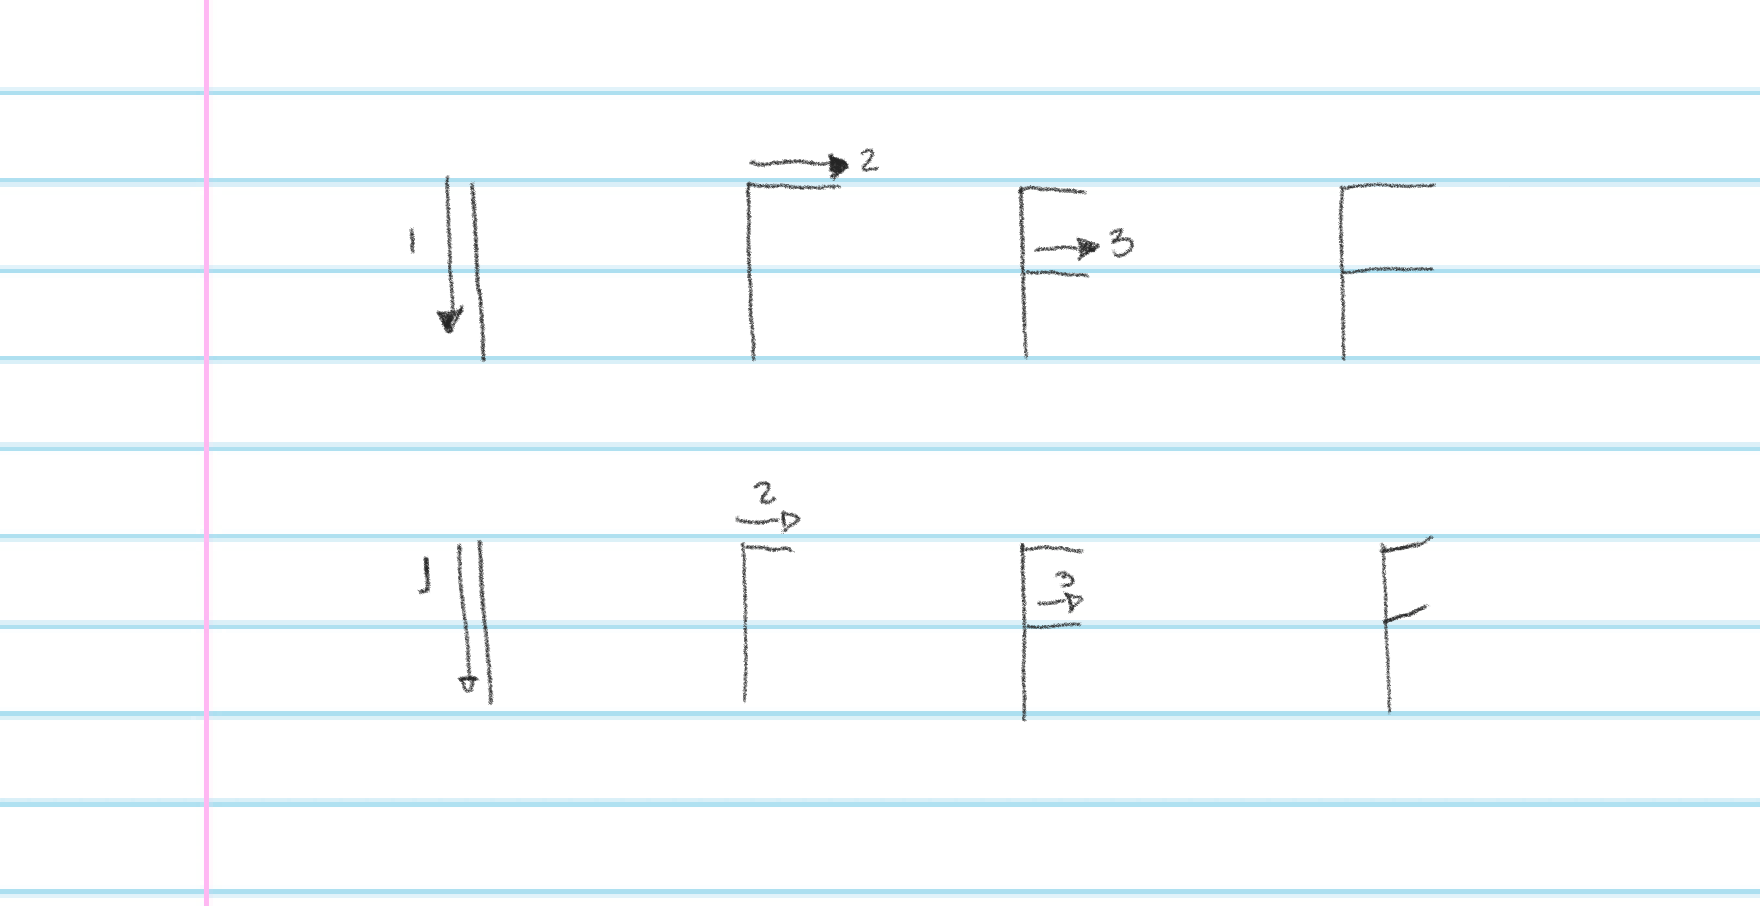 1 2 3 F
1 2 3 F